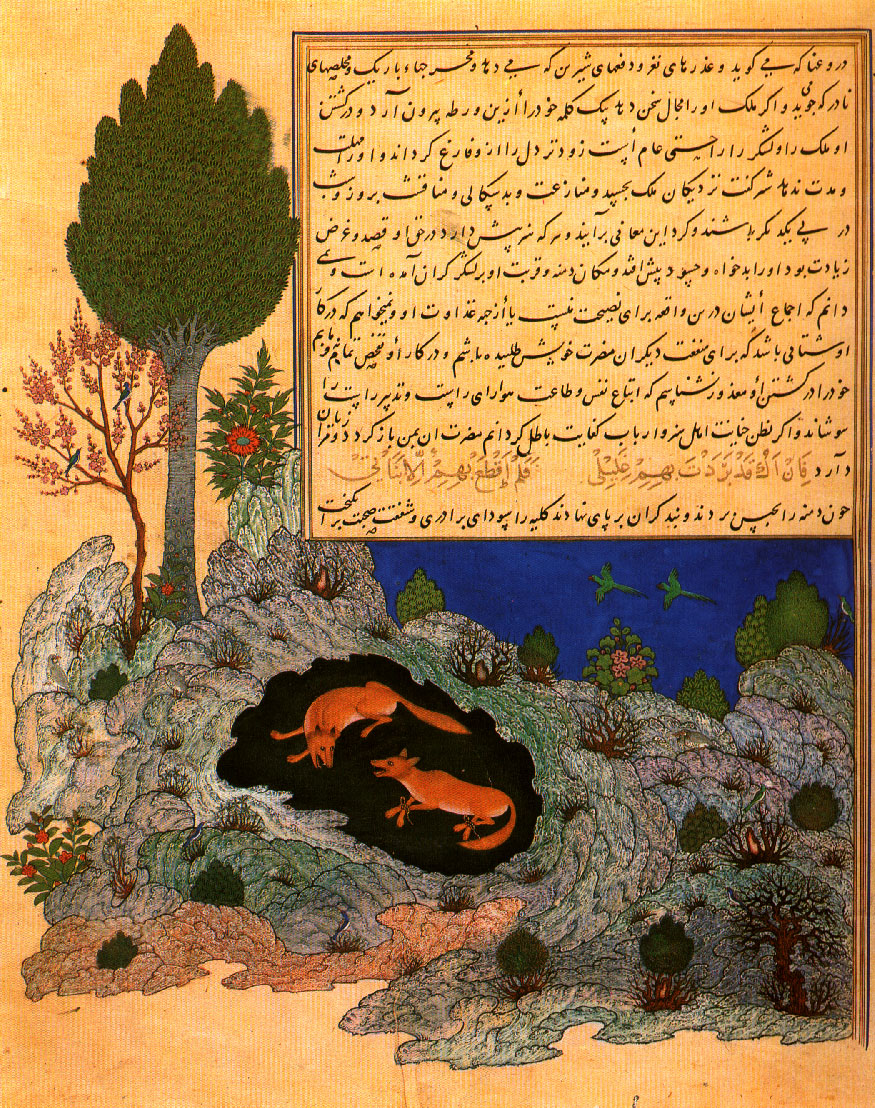 دروغها که می گوید و عذرهای نغز و دفعهای شیرین که می دهد و مخرجهاء باریک و مخلصهای
نادر که جوید و اگر ملک او را مجال سخن دهد بیک کلمه خود را ازین ورطه بیرون آرد و در کشتن
او ملک را و لشکر را راحتی عام است زودتر دل را ازو فارغ گرداند و او را مهلت
و مدت ندهد نزدیکان ملک بحسد و منازعت و بدسگالی و مناقشت بروز و شب
در پی یکدیگر باشند و گرد این معانی برآیند و هر که هنر بیش دارد در حق او قصد و غرض
زیادت بود و او را بدخواه و حسود بیش افتد و مکان دمنه و قربت او بر لشکر گران آمده است و نمی
دانم که اجماع ایشان درین واقعه برای نصیحت منست یا از جهة عداوت او و نمیخواهم که در کار
او شتابی باشد که برای منفعت دیگران مضرت خویش طلبیده باشم و در کار او تفحص تمام
خود را در کشتن او معذور نشناسم که اتباع نفس و طاعت هوا رای راست و تدبیر راست را
بپوشاند و اگر بظن خیانت اهل هنر و ارباب کفایت باطل گردانم مضرت ان بمن بازگردد
دارد فان اک قد بردت بهم غلیلی فلم اقطع بهم الا بنانی
چون دمنه را بحبس بردند و بند گران بر پای نهادند کلیله را برادری و شفقت صحبت برانگیخت